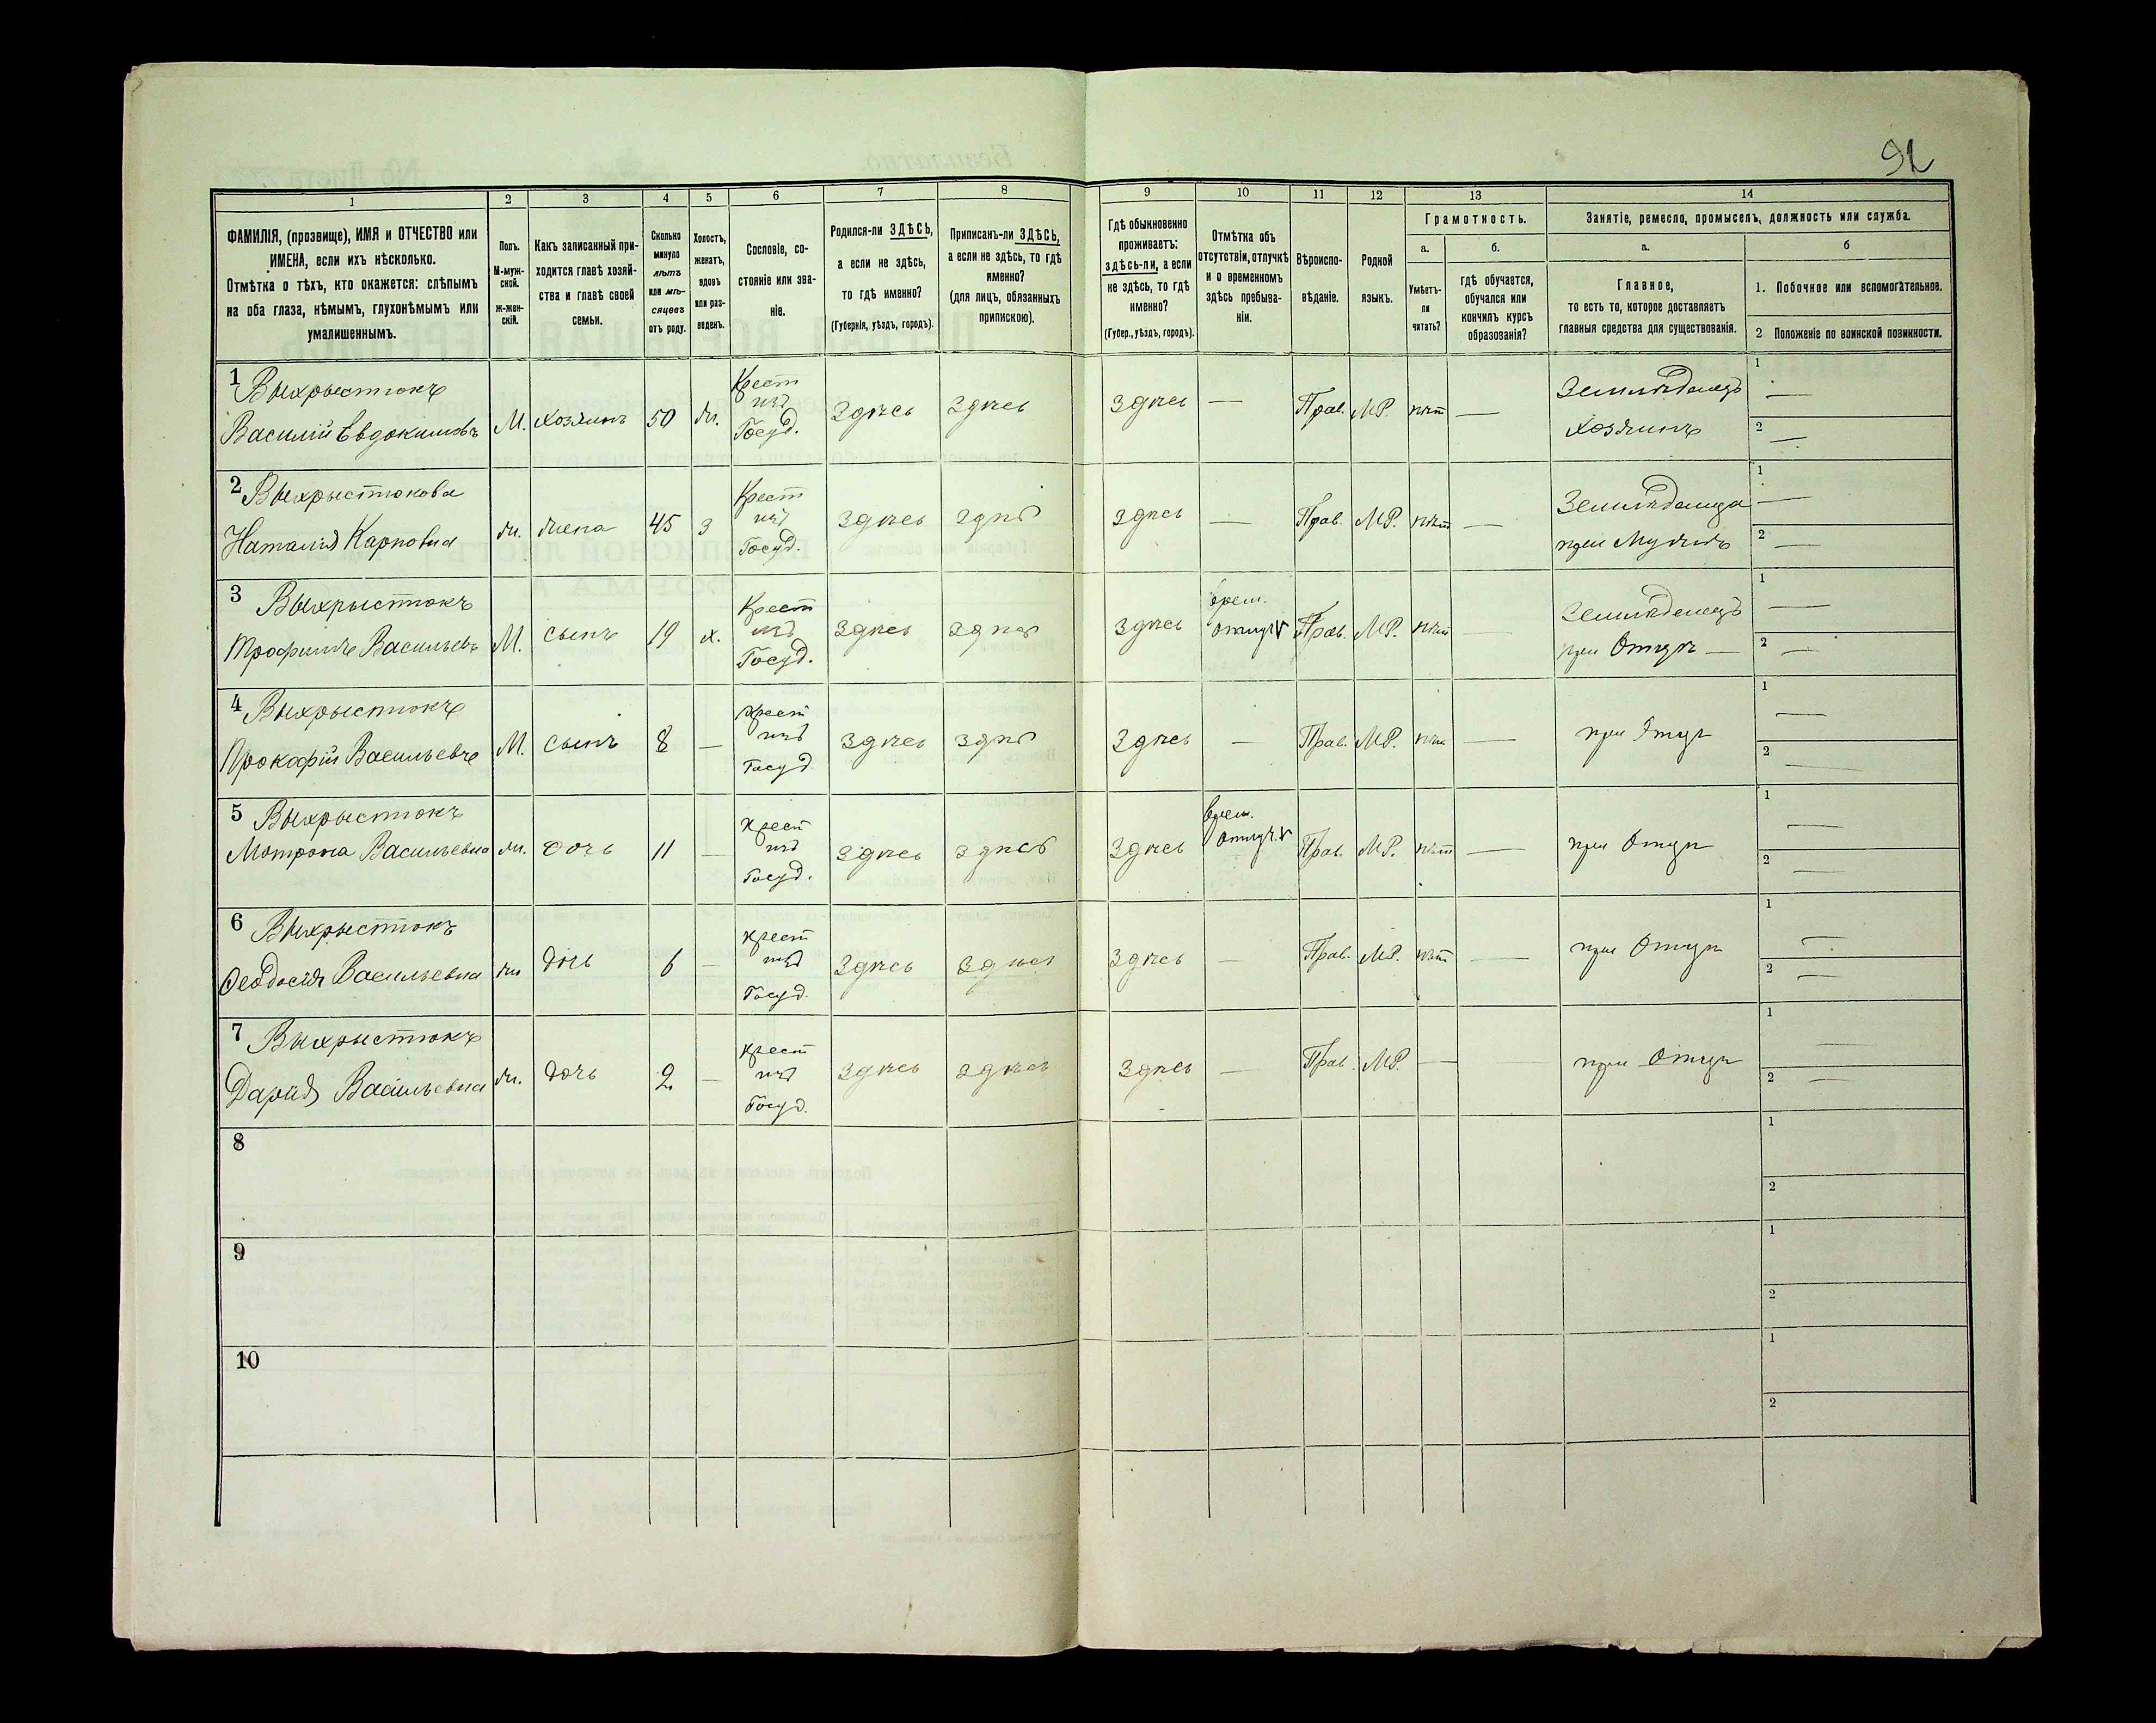 91
1
2
3
4
5
6
7
8
9
10
11
12
13
14
ФАМИЛІЯ, (прозвище), ИМЯ и ОТЧЕСТВО или
ИМЕНА, если ихъ нѣсколько.
Отмѣтка о тѣхъ, кто окажется: слѣпымъ
на оба глаза, нѣмымъ, глухонѣмымъ или
умалишеннымъ.
Полъ.
М-муж-
ской.
Ж-жен-
скій.
Какъ записанный при-
ходится главѣ хозяй-
ства и главѣ своей
семьи.
Сколько
минуло
лѣтъ
или мѣ-
сяцевъ
отъ роду.
Холостъ,
женатъ,
вдовъ
или раз-
веденъ.
Сословіе, со-
стояніе или зва-
ніе.
Родился-ли ЗДѢСЬ,
а если не здѣсь,
то гдѣ именно?
(Губернія, уѣздъ, городъ).
Приписанъ-ли ЗДѢСЬ,
а если не здѣсь, то гдѣ
именно?
(для лицъ, обязанныхъ
припискою).
Гдѣ обыкновенно
проживаетъ:
здѣсь-ли, а если
не здѣсь, то гдѣ
именно?
(Губер., уѣздъ, городъ).
Отмѣтка объ
отсутствіи, отлучкѣ
и о временномъ
здѣсь пребыва-
ніи.
Вѣроиспо-
вѣданіе.
Родной
языкъ.
Грамотность.
а.
Умѣетъ-
ли
читать?
б.
гдѣ обучается,
обучался или
кончилъ курсъ
образованія?
Занятіе, ремесло, промыселъ, должность или служба.
а.
Главное,
то есть то, которое доставляетъ
главныя средства для существованія.
б
1. Побочное или вспомогательное.
2 Положеніе по воинской повинности.
1 Выхрыстюкъ
Василій Евдокимовъ
М.
хозяинъ
50
ж.
Крест
изъ
Госуд.
Здѣсь
Здѣсь
Здѣсь
—
Прав.
МР.
нѣт
—
Земледѣлецъ
хозяинъ
1 —
2 —
2 Выхрыстюкова
Наталія Карповна
ж.
жена
45
з
Крест
изъ
Госуд.
Здѣсь
Здѣсь
Здѣсь
—
Прав.
МР.
нѣт
—
Земледѣлица
при Мужѣ
1 —
2 —
3 Выхрыстюкъ
Трофимъ Васильевъ
М.
сынъ
19
х.
Крест
изъ
Госуд.
Здѣсь
Здѣсь
Здѣсь
врем.
отлуч.
Прав.
МР.
нѣт
—
Земледѣлецъ
при Отцѣ —
1 —
2 —
4 Выхрыстюкъ
Прокофій Васильевъ
М.
сынъ
8
—
крест
изъ
Госуд
Здѣсь
Здѣсь
Здѣсь
—
Прав.
МР.
нѣт
—
при Отцѣ
1 —
2 —
5 Выхрыстюкъ
Мотрона Васильевна
ж.
дочь
11
—
крест
изъ
Госуд.
Здѣсь
Здѣсь
Здѣсь
Врем.
отлуч.
Прав.
МР.
нѣт
—
при Отцѣ
1 —
2 —
6 Выхрыстюкъ
Ѳеодосія Васильевна
ж
дочь
6
—
крест
изъ
Госуд.
Здѣсь
Здѣсь
Здѣсь
—
Прав.
МР.
нѣт
—
при Отцѣ
1 —
2 —
7 Выхрыстюкъ
Дарія Васильевна
ж.
дочь
2
—
крест
изъ
Госуд.
Здѣсь
Здѣсь
Здѣсь
—
Прав.
МР.
—
—
при Отцѣ
1 —
2 —
8
1
2
9
1
2
10
1
2